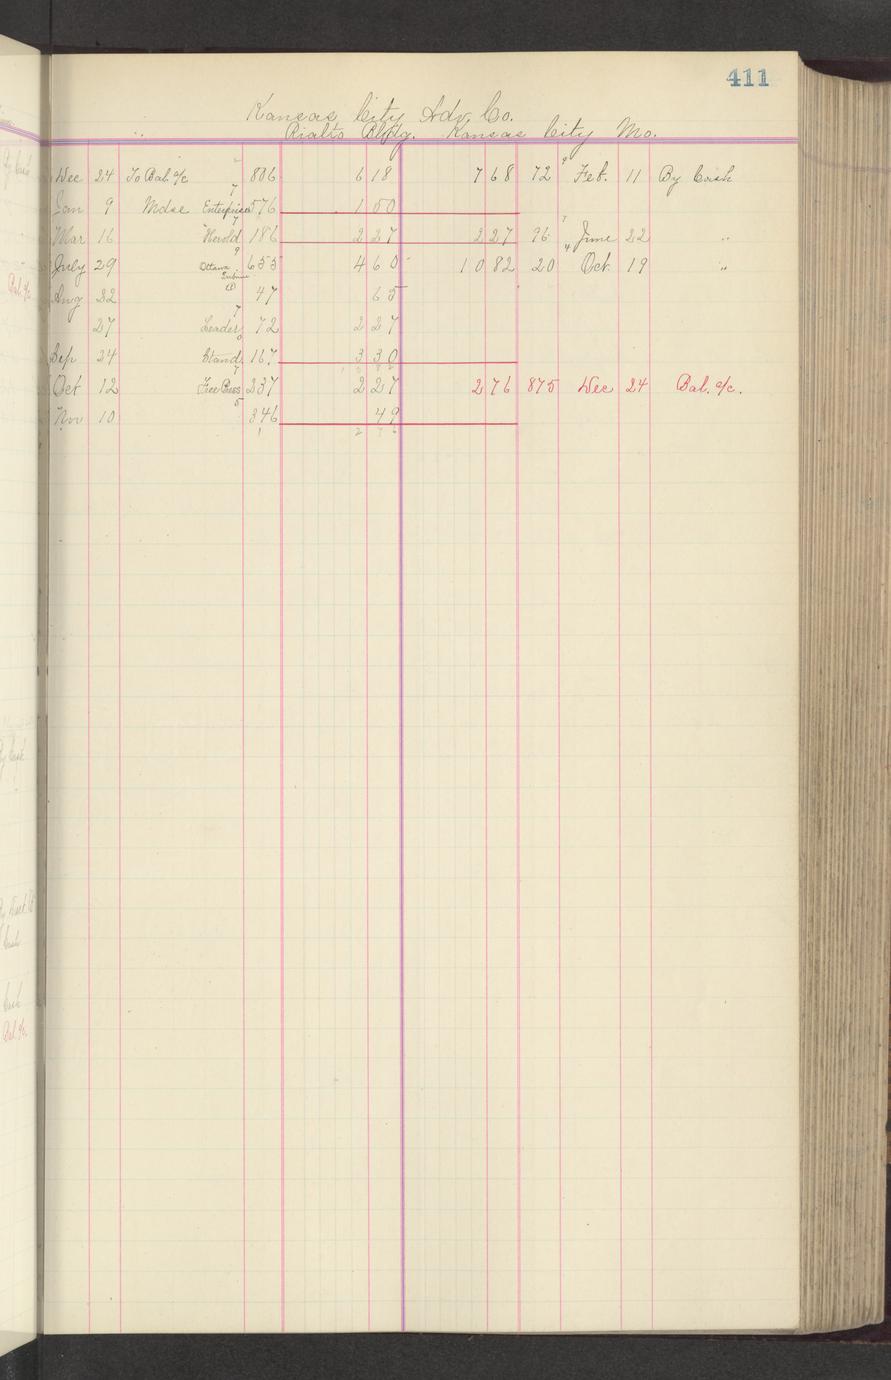 411
Kansas City Adv. Co.
Rialto Bldg. Kansas City Mo.
Dec 24 To Bal a/c 806 6 18 7 68 72 Feb. 11 By Cash
Jan 9 Mdse Enterprise 576 1 50
Mar 16 Herold 186 2 27 2 27 96 June 22 "
July 29 Ottawa 655 4 60 10 82 20 Oct 19 "
Aug 22 47 65
27 Leader 72 2 27
Sep 24 Stand 167 3 30
Oct 12 Free Press 237 2 27 2 76 875 Dec 24 Bal. a/c.
Nov 10 346 49
2 76